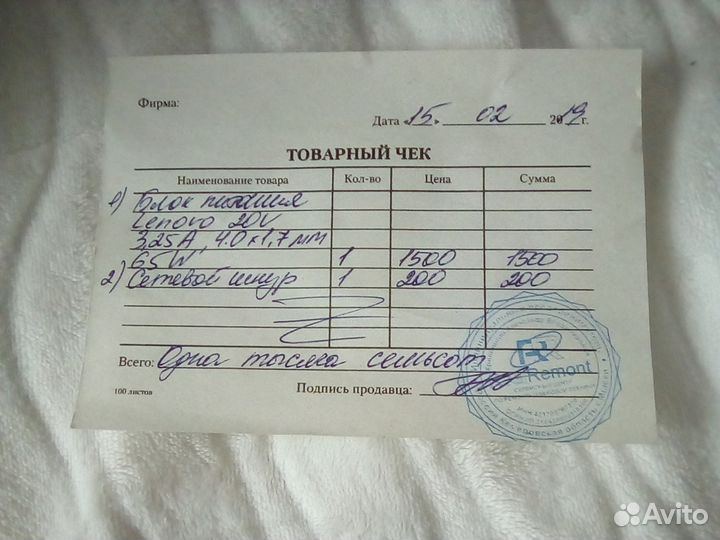 Фирма:
Дата «15» 02 2019 г.
ТОВАРНЫЙ ЧЕК
Наименование товара Кол-во Цена Сумма
1) Блок питания
Lenovo 20V
3,25A, 4.0x1,7 мм
65W 1 1500 1500
2) Сетевой шнур 1 200 200
Всего: Одна тысяча семьсот
100 листов
Подпись продавца:
Remont
СЕРВИСНЫЙ ЦЕНТР
Кемеровская область
Avito